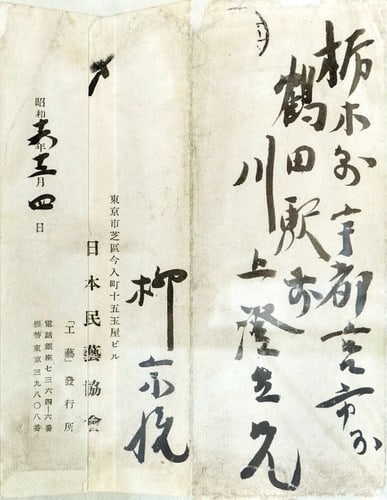 栃木縣宇都宮市外
鶴田駅前
川上澄生兄
柳宗悦
東京市芝區今入町十五玉屋ビル
日本民藝協會
「工藝」發行所
電話銀座七三六四—六番
振替東京三九八〇八番
昭和十六年三月四日